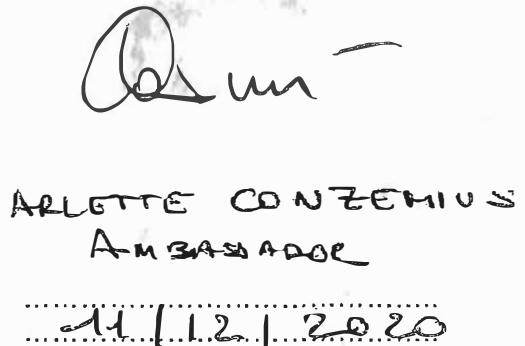 ARLETTE CONZEMIUS
AMBASSADOR
11/12/2020